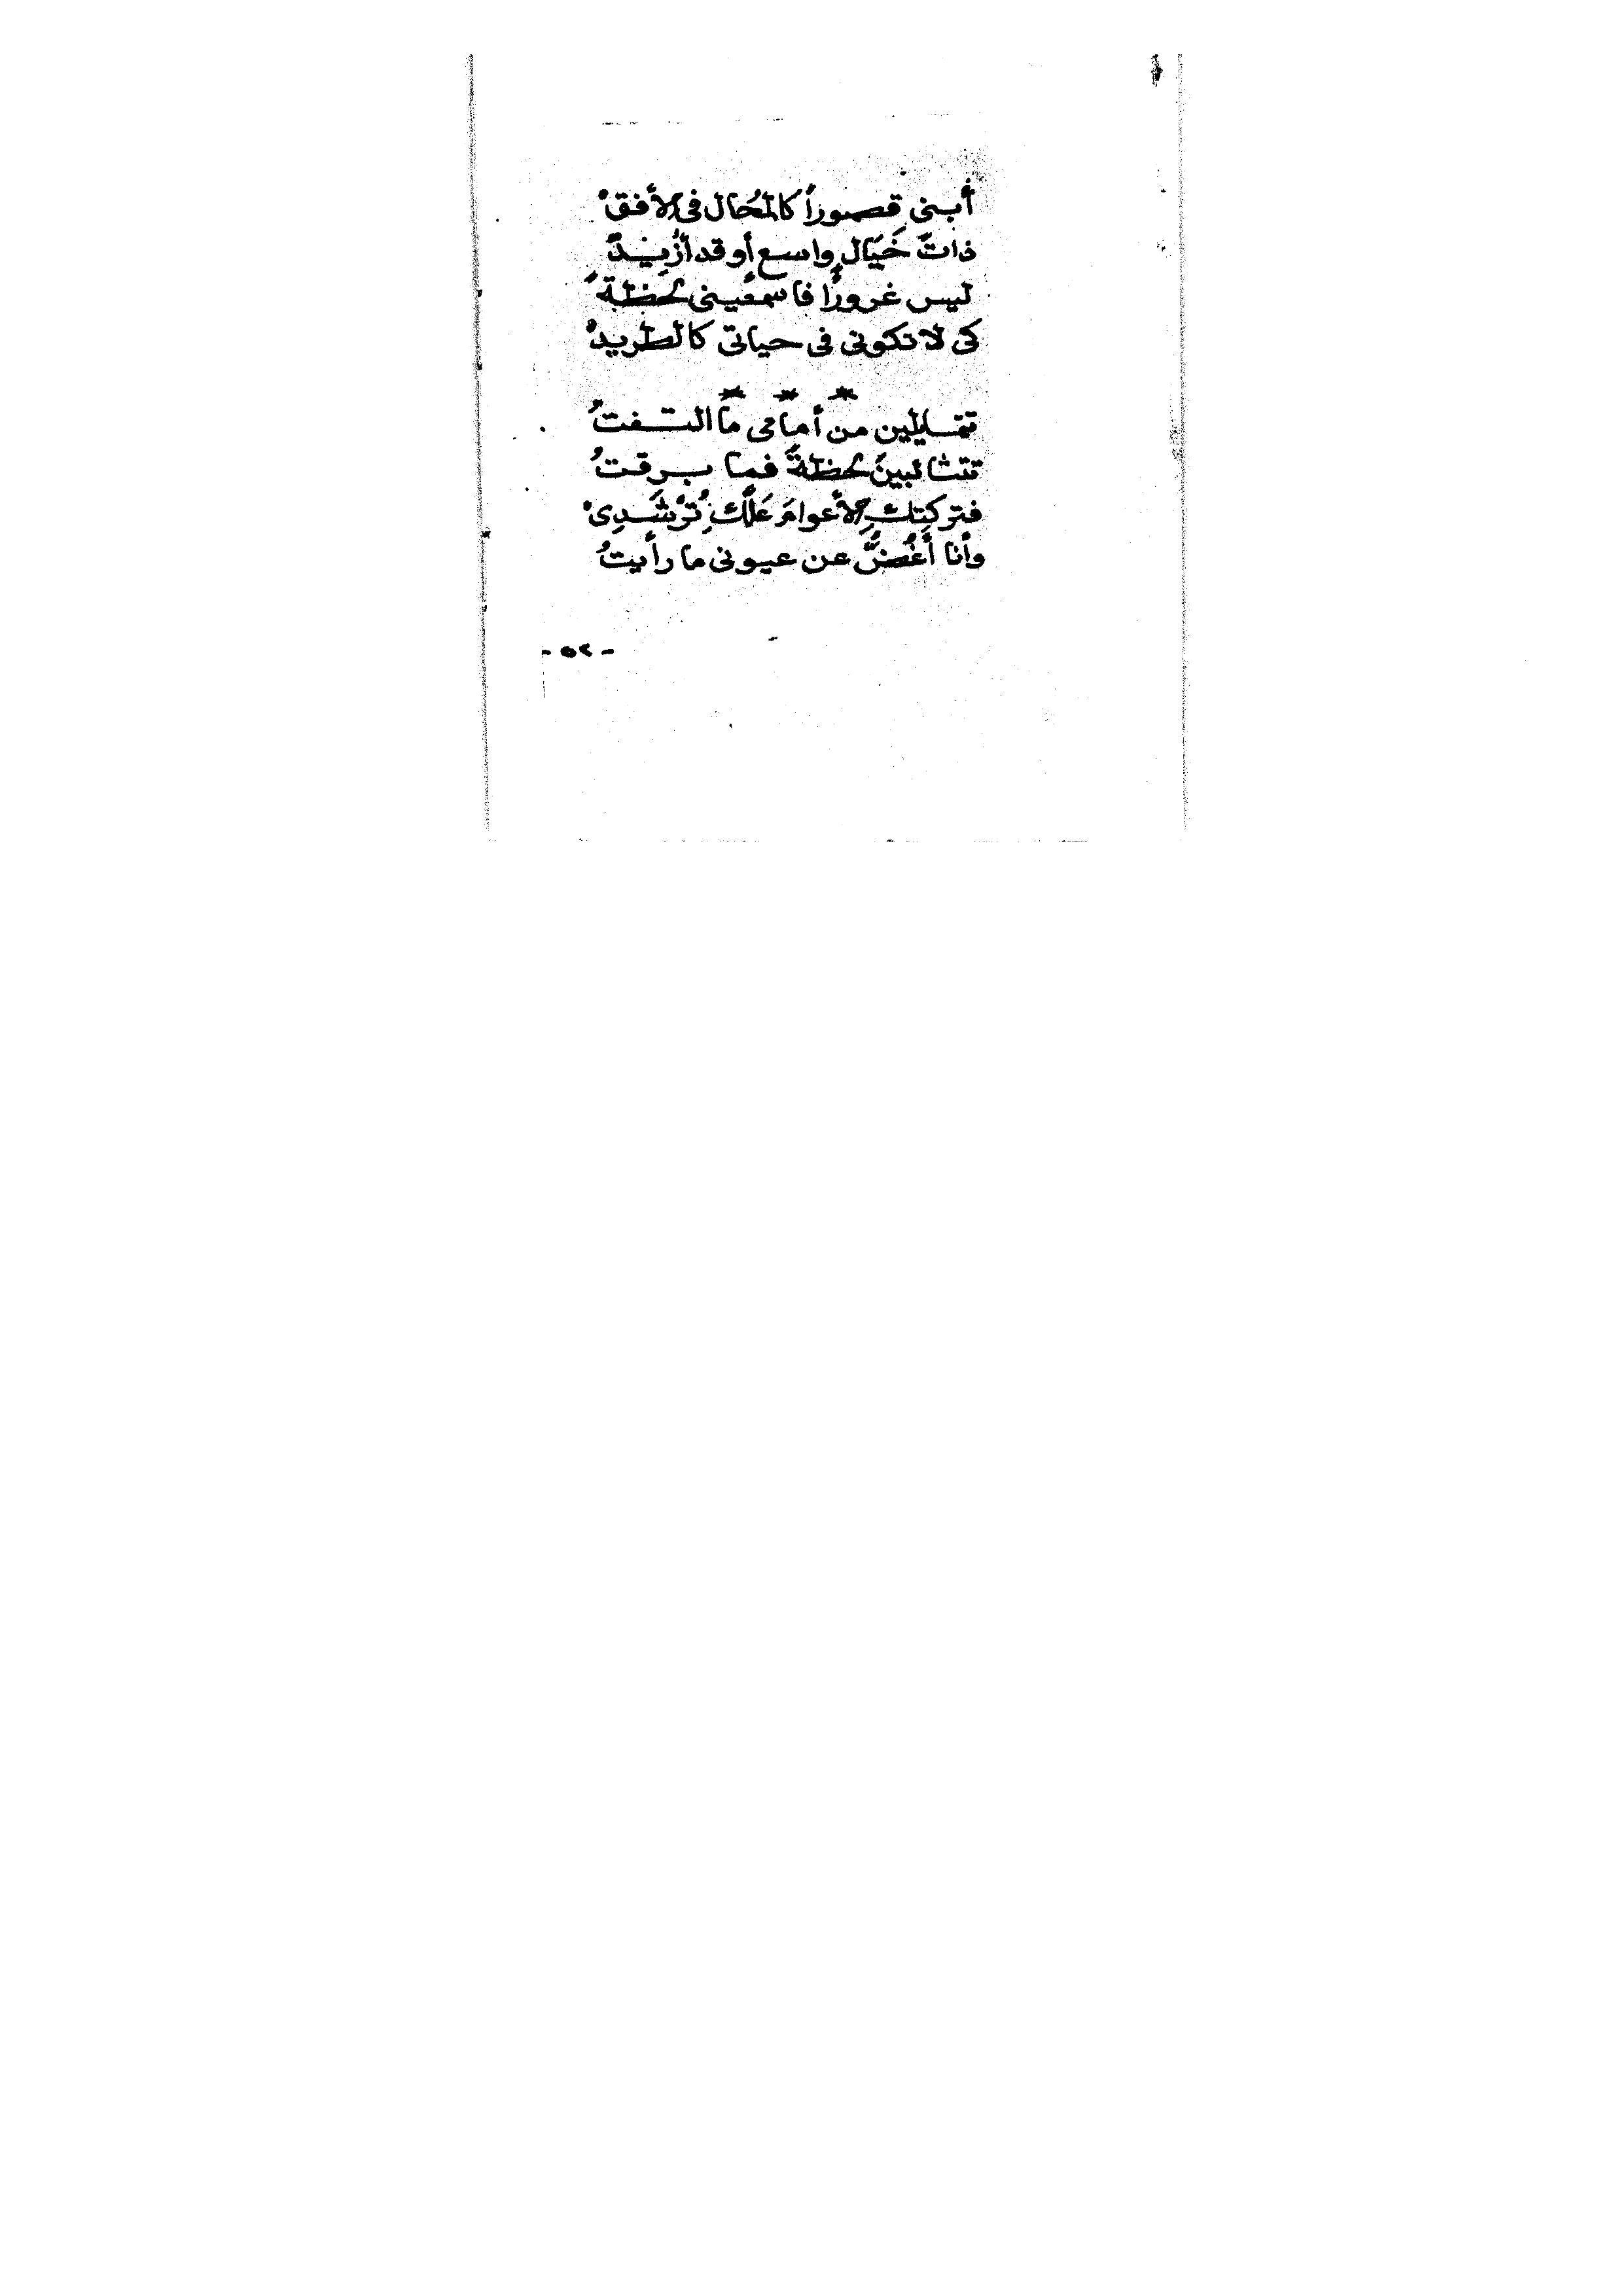 أبنى قصوراً كالمُحال فى الأفقْ
ذاتَ خَيَالٍ واسع أو قد أزُيِــدْ
ليس غروراً فاسمعينى لحظةً
كى لا تكونى فى حياتى كالطريدْ
* * *
تتمـايلين من أمامى ما التـفتُّ
تتثائبينَ لحظةً فما بـرقتُ
فتركتكِ الأعوامَ عَلَّكِ تُرْشَـدِىْ
وأنا أَغُضُّ عن عيونى ما رأيتُ
- ٥٢ -